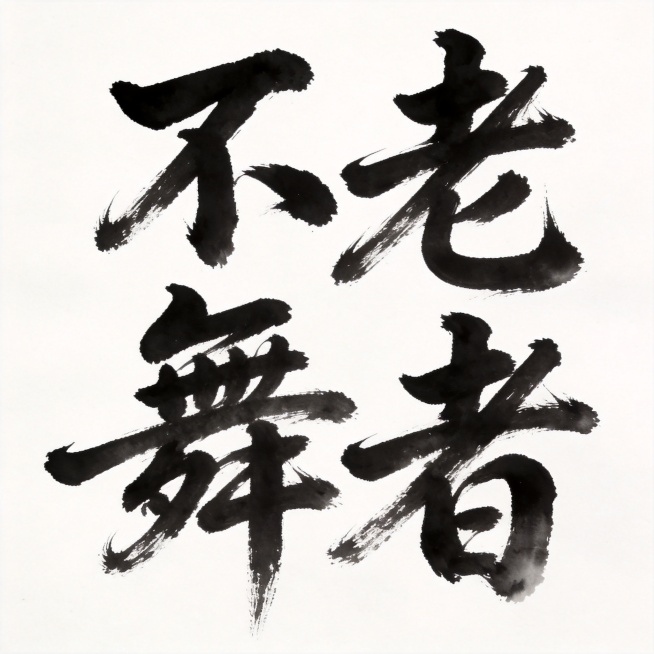 不老
舞者